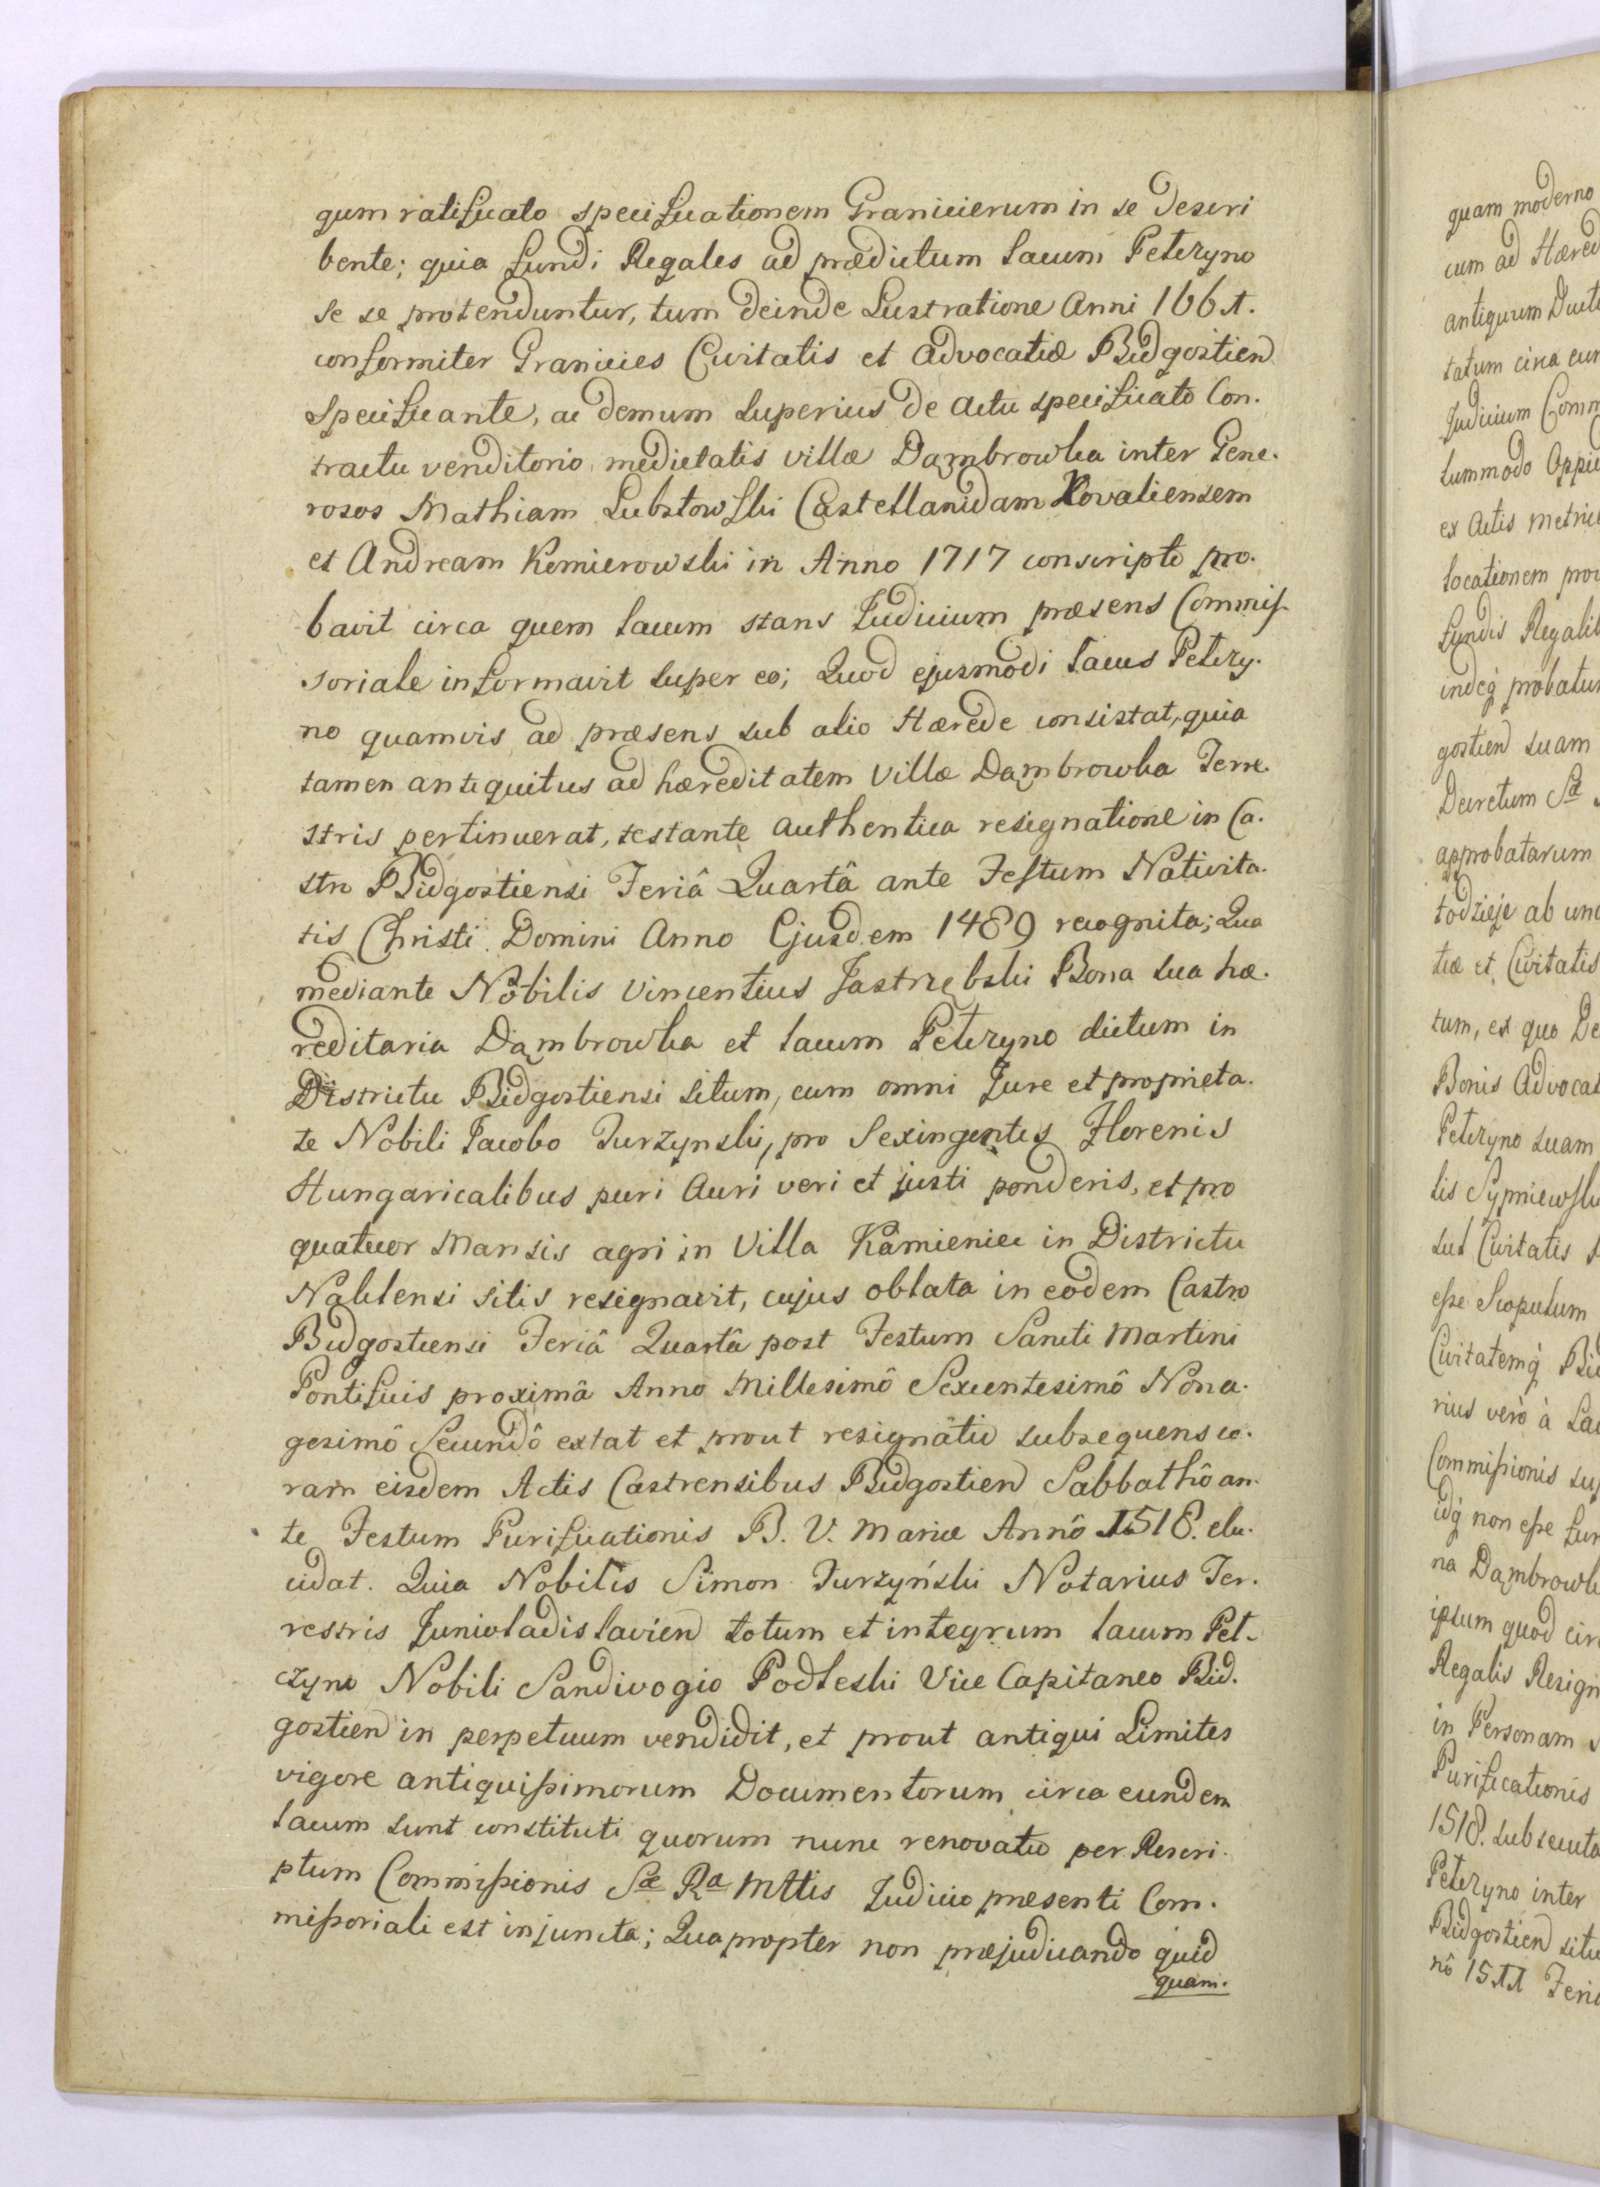 gum ratificato specificationem Granicierum in se descri
bente; quia fundi Regales ad prædictum lacum Petczyno
se se protenduntur, tum deinde Lustratione Anni 1661.
conformiter Granicies Civitatis et Advocatiæ Bidgostien
specificante, ac demum superius de actu specificato Con.
tractu venditorio medietatis villæ Dąmbrowka inter Gene.
rosos Mathiam Lubstowski Castellanidam Kovaliensem
et Andream Komierowski in Anno 1717 conscripto pro.
bavit circa quem lacum stans Judicium præsens Commis.
soriale informavit super eo; Quod ejusmodi lacus Petczy.
no quamvis ad præsens sub alio Hærede consistat, quia
tamen antiquitus ad hæreditatem Villæ Dąmbrowka Terre.
stris pertinuerat, testante authentica resignatione in Ca.
stro Bidgostiensi Feriâ Quartâ ante Festum Nativita.
tis Christi Domini Anno Ejusdem 1489 recognita; Qua
mediante Nobilis Vincentius Jastrzębski Bona sua hæ.
reditaria Dąmbrowka et lacum Petczyno dictum in
Districtu Bidgostiensi situm, cum omni Jure et proprieta.
te Nobili Jacobo Turzynski, pro Sexingentis Florenis
Hungaricalibus puri Auri veri et justi ponderis, et pro
quatuor Mansis agri in Villa Kamieniec in Districtu
Naklensi sitis resignavit, cujus oblata in eodem Castro
Bidgostiensi Feriâ Quartâ post Festum Sancti Martini
Pontificis proximâ Anno Millesimô Sexcentesimô Nona.
gesimô Secundô extat et prout resignatio subsequens co.
ram eisdem Actis Castrensibus Bidgostien Sabbathô an.
te Festum Purificationis B. V. Mariæ Annô 1518. elu.
cidat. Quia Nobilis Simon Turzyński Notarius Ter.
restris Junivladislavien totum et integrum lacum Pet.
czyno Nobili Sandivogio Podleski Vice Capitaneo Bid.
gostien in perpetuum vendidit, et prout antiqui Limites
vigore antiquissimorum Documentorum circa eundem
lacum sunt constituti quorum nunc renovatio per Rescri.
ptum Commissionis Sæ Ra Mttis Judicio præsenti Com.
missoriali est injuncta; Quapropter non præjudicando quid
quam.
quam moderno
cum ad Hæred
antiquum Duct
tatum circa eun
Judicium Comm
tummodo Oppid
ex Actis Metric
locationem prou
fundis Regalib
indeq probatu
gostien suam
Decretum Sæ
approbatarum
todzieje ab un
tiæ et Civitatis
tum, ex quo De
Bonis Advocat
Petczyno suam
lis Sypniewsk
sub Civitatis
esse Scopulum
Civitatemq Bi
rius verò à La
Commissionis su
idq non esse fun
na Dąmbrowk
ipsum quod cir
Regalis Resign
in Personam
Purificationis
1518. subsecuta
Petczyno inter
Bidgostien situ
nô 1511 Feri